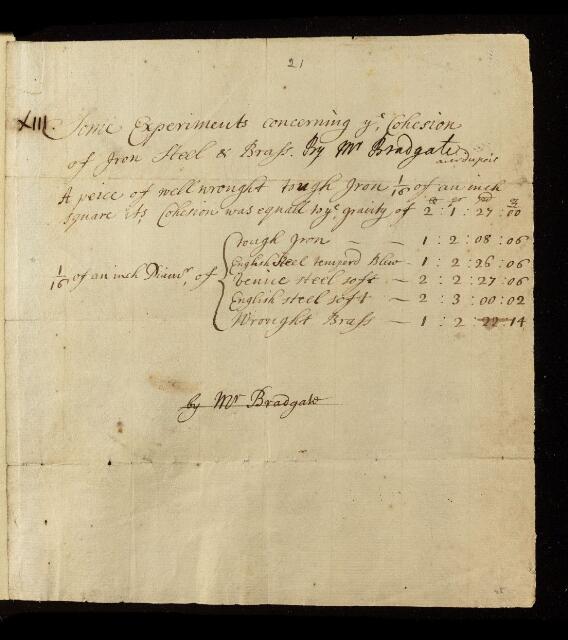 21
XIII. Some Experiments concerning yͤ. Cohesion
of Iron Steel & Brass. By Mʳ Bradgate
averdupois
A peice of well wrought tough Iron 1/16 of an inch
square its Cohesion was equall to yͤ. gravity of 2 : 1 : 27 : 00
1/16 of an inch Diamʳ. of
tough Iron — — 1 : 2 : 08 : 06
English Steel temperd Blew - 1 : 2 : 26 : 06
Venice steel soft — 2 : 2 : 27 : 06
English steel soft — 2 : 3 : 00 : 02
Wrought Brass — 1 : 2 : 22 : 14
by Mʳ Bradgate